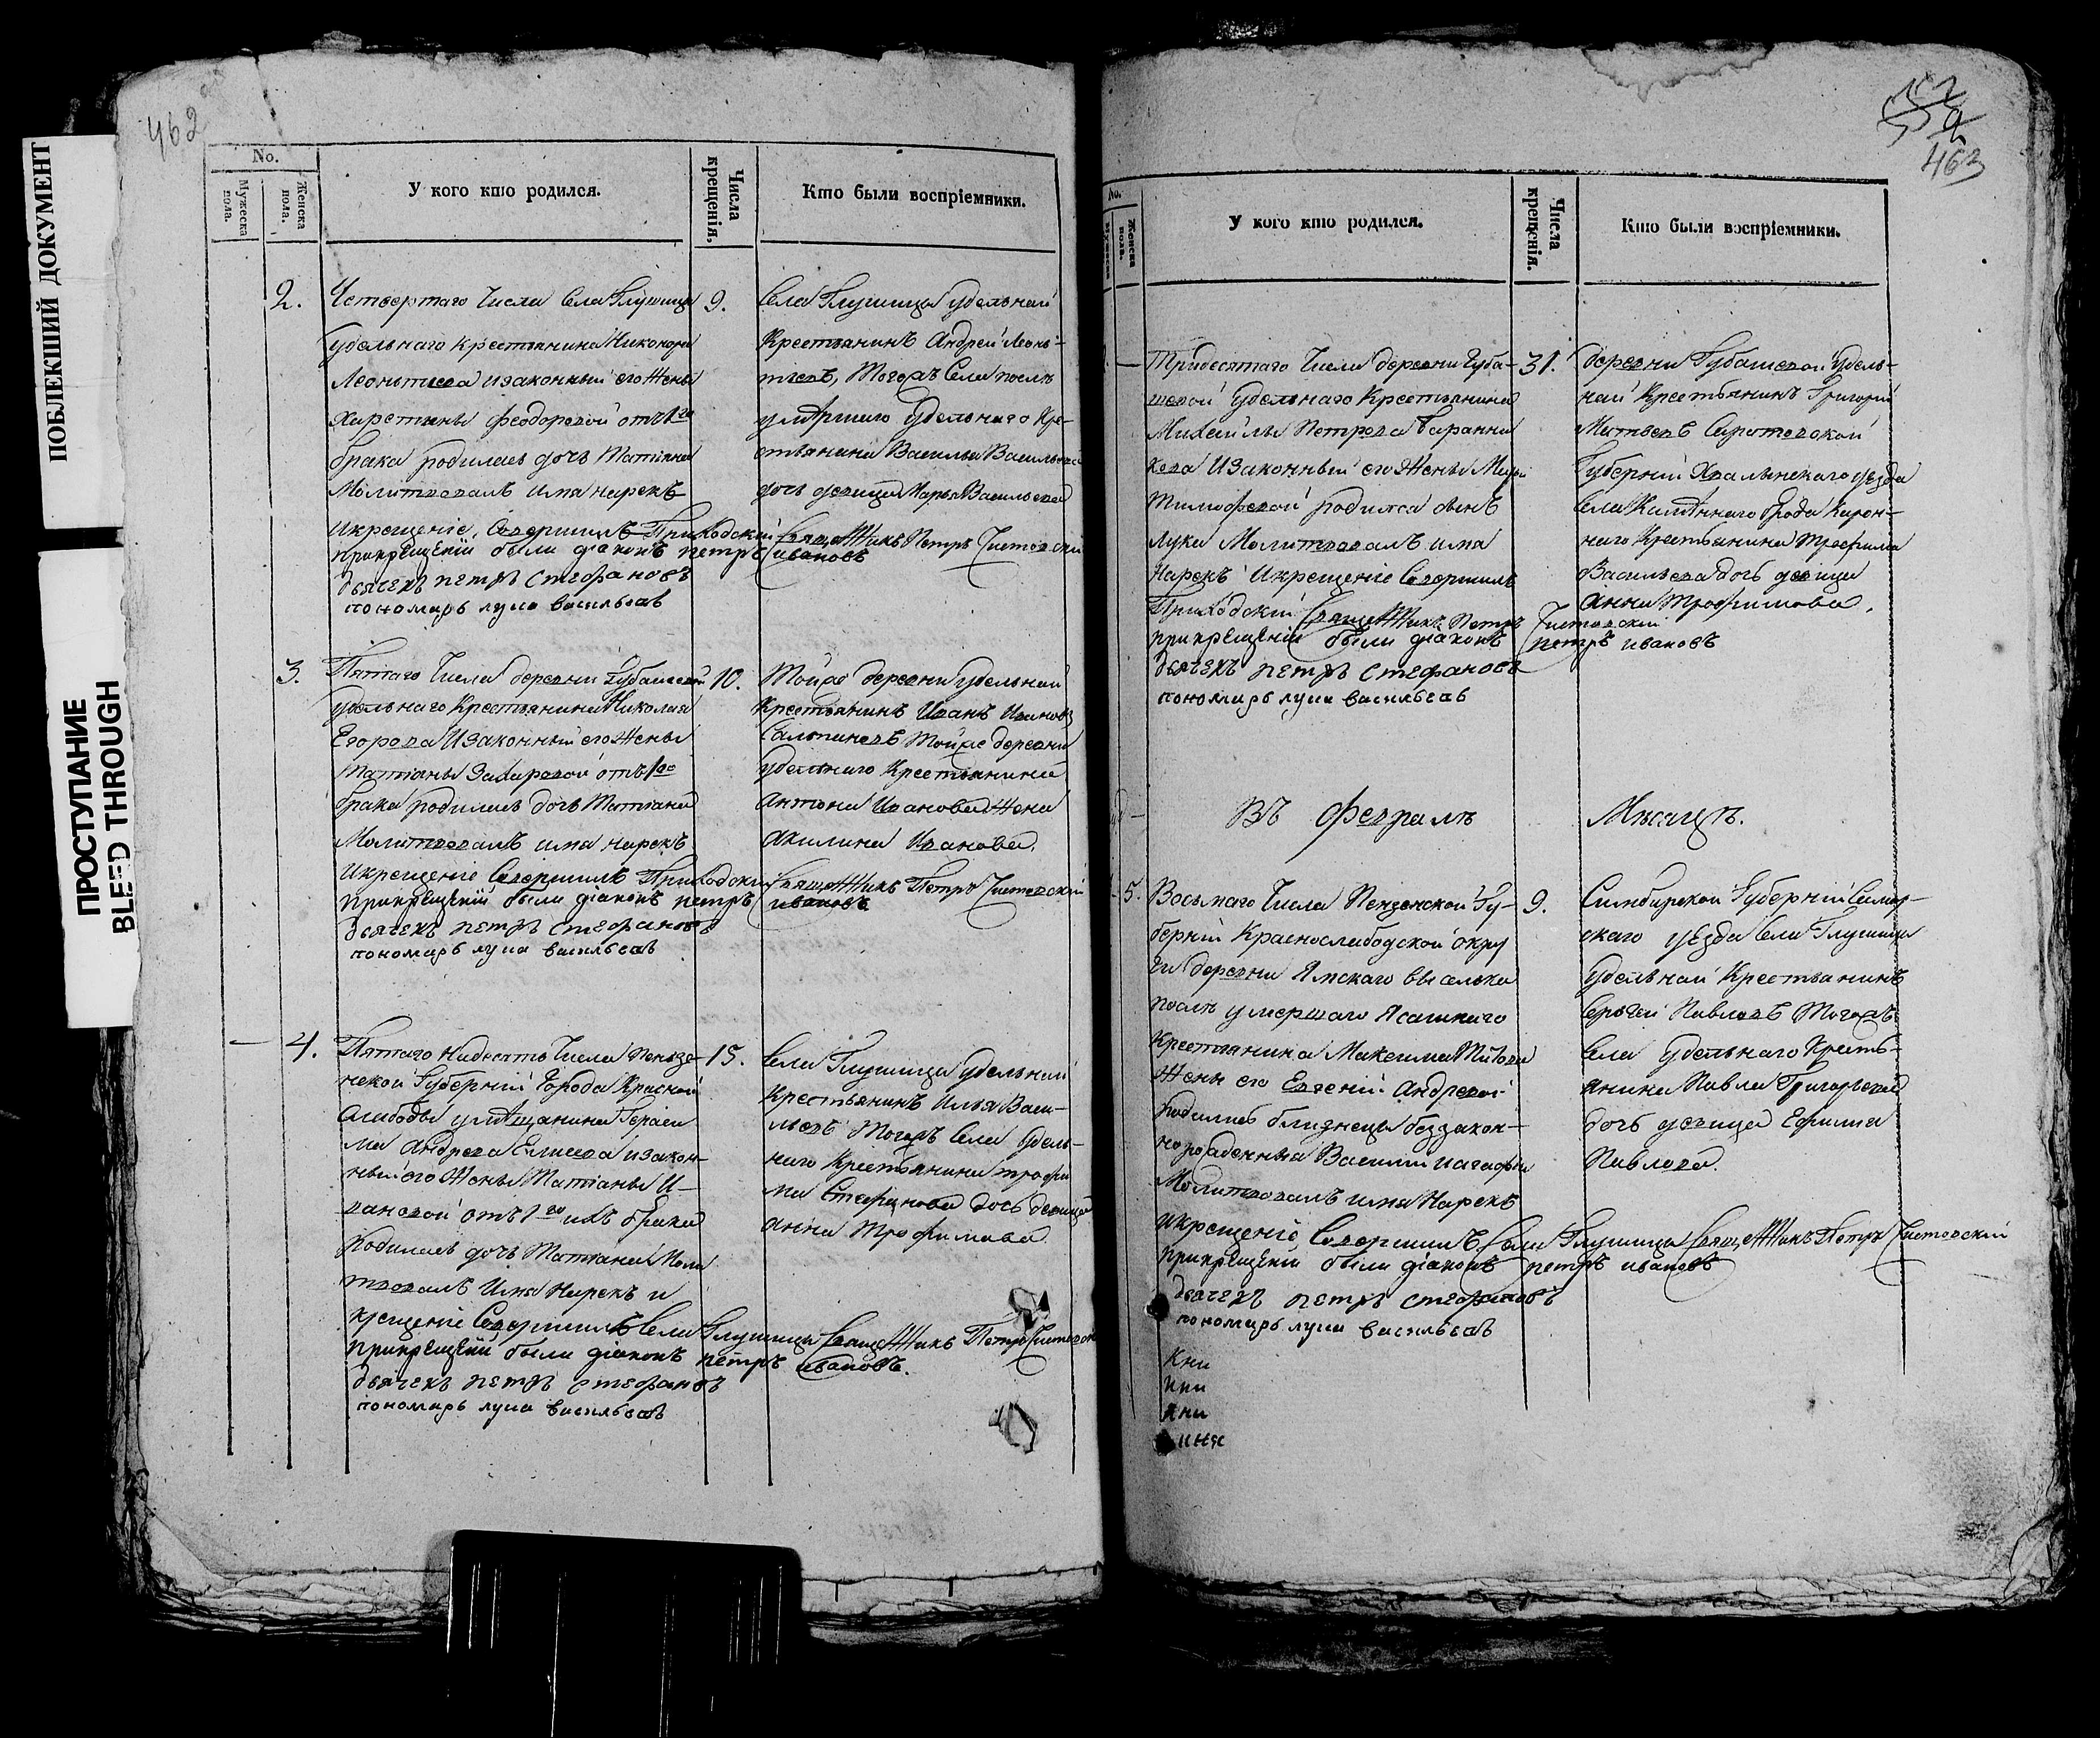 ПОБЛЕКШИЙ ДОКУМЕНТ
ПРОСТУПАНИЕ
BLEED THROUGH
462
No.
Мужеска пола.
Женска пола.
У кого кто родился.
Числа крещенія.
Кто были воспріемники.
2.
Четвертаго Числа Села Глушица
удельнаго крестьянина Никонора
Леонтьева изаконный его Жены
Харетины феодоровой отъ 1го
брака родилась дочь Татіяна
Молитвовалъ имя нарекъ
Икрещеніе Совершилъ Приходский Священникъ Петръ Чистовский
прикрещеніи были діаконъ петръ ивановъ
дьячекъ петръ Стефановъ
пономарь лука васильевъ
9.
Села Глушица удельный
Крестьянинъ Андрей Леонь-
тьевъ, Тогожъ Села послѣ
умѣршаго Удельнаго Кре-
стьянина Василья Васильева
дочь девица Марья Васильева
3.
Пятаго Числа деревни Губашевой
удельнаго Крестьянина Николая
Егорова Изаконный его Жены
Татіаны Захаровой отъ 1го
брака родилась дочь Татіана
Молитвовалъ имя нарекъ
Икрещеніе Совершилъ Приходский Священникъ Петръ Чистовский
прикрещеніи были діаконъ петръ ивановъ
дьячекъ петръ Стефановъ
пономарь лука васильевъ
10.
Тойже деревни удельный
Крестьянинъ Иванъ Ивановъ
Тойже деревни
удельнаго Крестьянина
Антона Иванова Жена
Акилина Иванова.
4.
Пятаго надесять Числа Пензе-
нской Губерній Города Красной
Слободы у мѣщанина Гераси
ма Андреева Елисева изакон-
ный его Жены Татіаны И-
вановой отъ 1го ихъ брака
Родилась дочь Татіана Моли
твовалъ Имя Нарекъ и
крещеніе Совершилъ Села Глушицы Священникъ Петръ Чистовск
прикрещеніи были діаконъ петръ ивановъ.
дьячекъ петръ стефановъ
пономарь лука васильевъ
15.
Села Глушица удельный
Крестьянинъ Илья Васи-
льевъ Тогожъ Села Удель-
наго Крестьянина трофи
ма Стефанова дочь девица
анна Трофимова
463
No.
Мужеска
Женска пола.
У кого кто родился.
Числа крещенія.
Кто были воспріемники.
Тридесятаго Числа деревни Губа-
шевой Удельнаго Крестьянина
Михайлы Петрова Баранни
кова Изаконный его Жены
Тимофеевой родился сынъ
лука Молитвовалъ имя
Нарекъ Икрещеніе Совершилъ
Приходский Священникъ Петръ Чистовский
прикрещеніи были діаконъ петръ ивановъ
дьячекъ петръ стефановъ
пономарь лука васильевъ
31.
деревни Губашевой Удель-
най Крестьянинъ Григорій
Матвеевъ Саратовской
Губерній Хвалынскаго уѣзда
Села Камѣннаго брода
наго Крестьянина Трофима
Васильева дочь девица
анна Трофимова.
Въ февралѣ Мѣсяцѣ.
5.
Восьмаго Числа Пензенской Гу-
берній Краснослободской окру
ги деревни Ямскаго выселка
послѣ умершаго Ясашнаго
Крестьянина Максима Титова
Жены его Евгеній Андреевой
Родились близнецы беззакон-
норожденныя Василій иагафья
Молитвовалъ имя Нарекъ
икрещеніе Совершилъ Села Глушицы Священникъ Петръ Чистовский
прикрещеніи были діаконъ петръ ивановъ
дьячекъ петръ стефановъ
пономарь лука васильевъ
9.
Симбирской Губерній Самар-
скаго уѣзда Села Глушицы
Удельнай Крестьянинъ
Сергей Павловъ Тогожъ
Села Удельнаго Кресть-
янина Павла Григорьева
дочь девица Ефимия
Павлова.